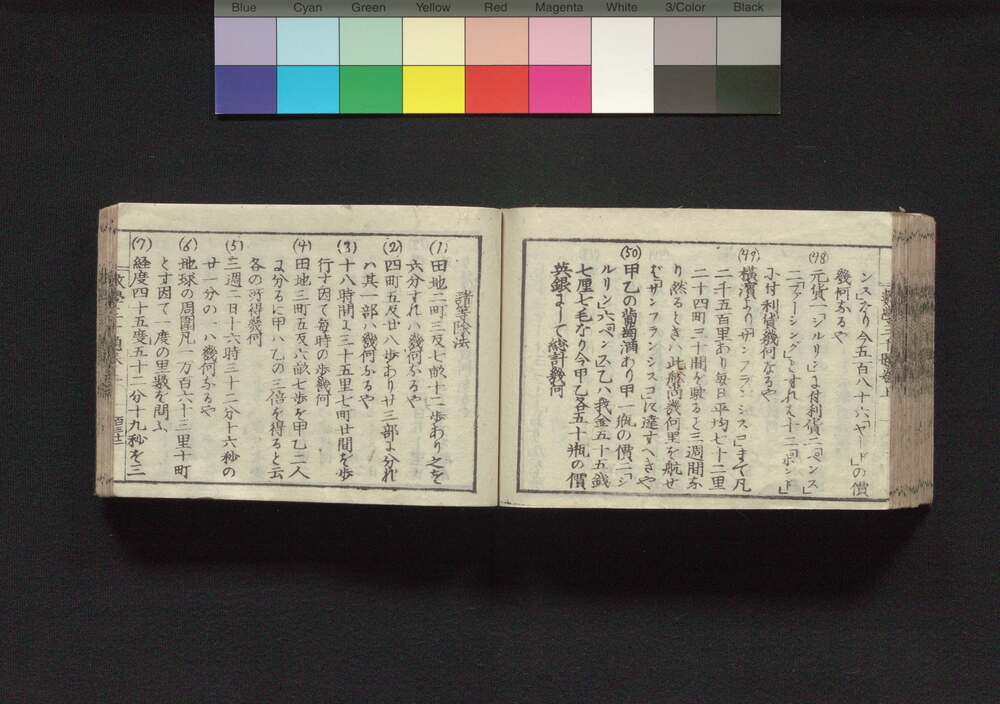 Blue Cyan Green Yellow Red Magenta White 3/Color Black
ンス」なり今五百八十六「ヤード」の價
幾何なるや
(48) 元貨一「シルリング」に付利債二「ペンス」
二「ファーシング」とすれハ十二「ポンド」
に付利債幾何なるや
(49) 橫濱より「サンフランシスコ」まで凡
二千五百里あり每日平均七十二里
二十四町三十間を駛ると三週間を
り然るときハ此後尚幾何里を航せ
む「サンフランシスコ」に達すへきや
(50) 甲乙の葡萄酒あり甲一瓶の價二「シ
ルリン」六「ペンス」乙ハ我金五十五錢
七厘七毛なり今甲乙各五十瓶の價
英銀にして總計幾何
諸等除法
(1) 田地二町三反七畝十二步あり之を
六分すれハ幾何なるや
(2) 四町五反廿八步あり廿三部に分れ
ハ其一部ハ幾何なるや
(3) 十八時間に三十五里七町廿間を步
行す因て每時の步幾何
(4) 田地三町五反六畝七步を甲乙二人
に分るに甲ハ乙の三倍を得ると云
各の所得幾何
(5) 三週二日十六時三十二分十六秒の
廿一分の一ハ幾何なるや
(6) 地球の周圍凡一万百六十三里十町
とす因て一度の里數を問ふ
(7) 経度四十五度五十二分十九秒を三